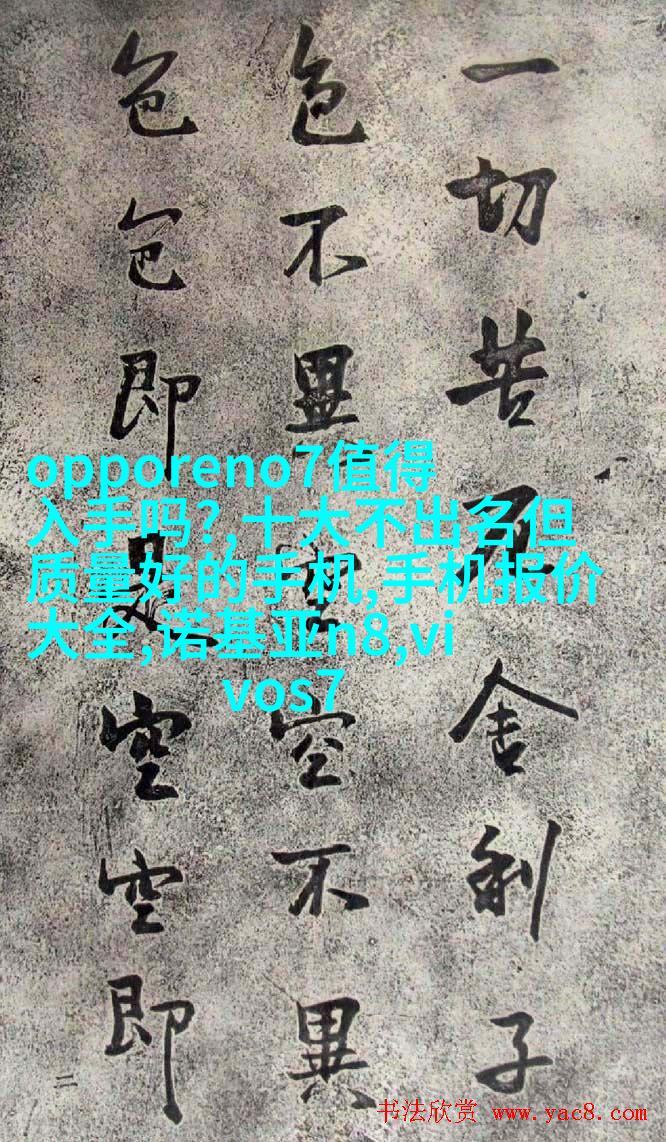 一切苦厄舍利子
色不異空空不異
色色即是空空即
二
opporeno7值得
入手吗?,十大不出名但
质量好的手机,手机报价
大全,诺基亚n8,vi
vos7
书法欣赏 www.yac8.com